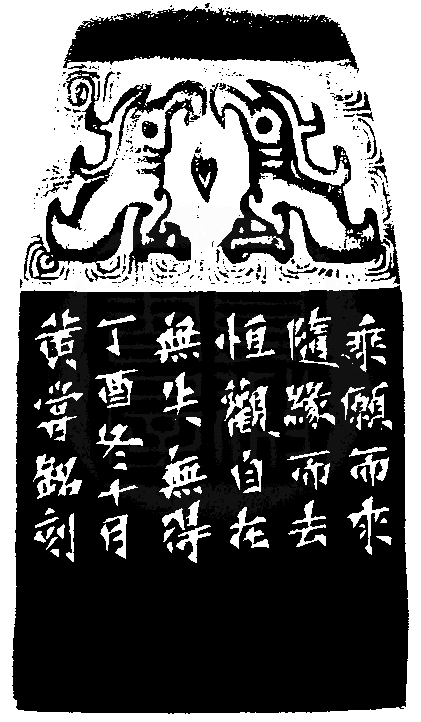 乘願而來
隨緣而去
恒觀自在
無失無得
丁酉冬十月
黄嘗銘刻